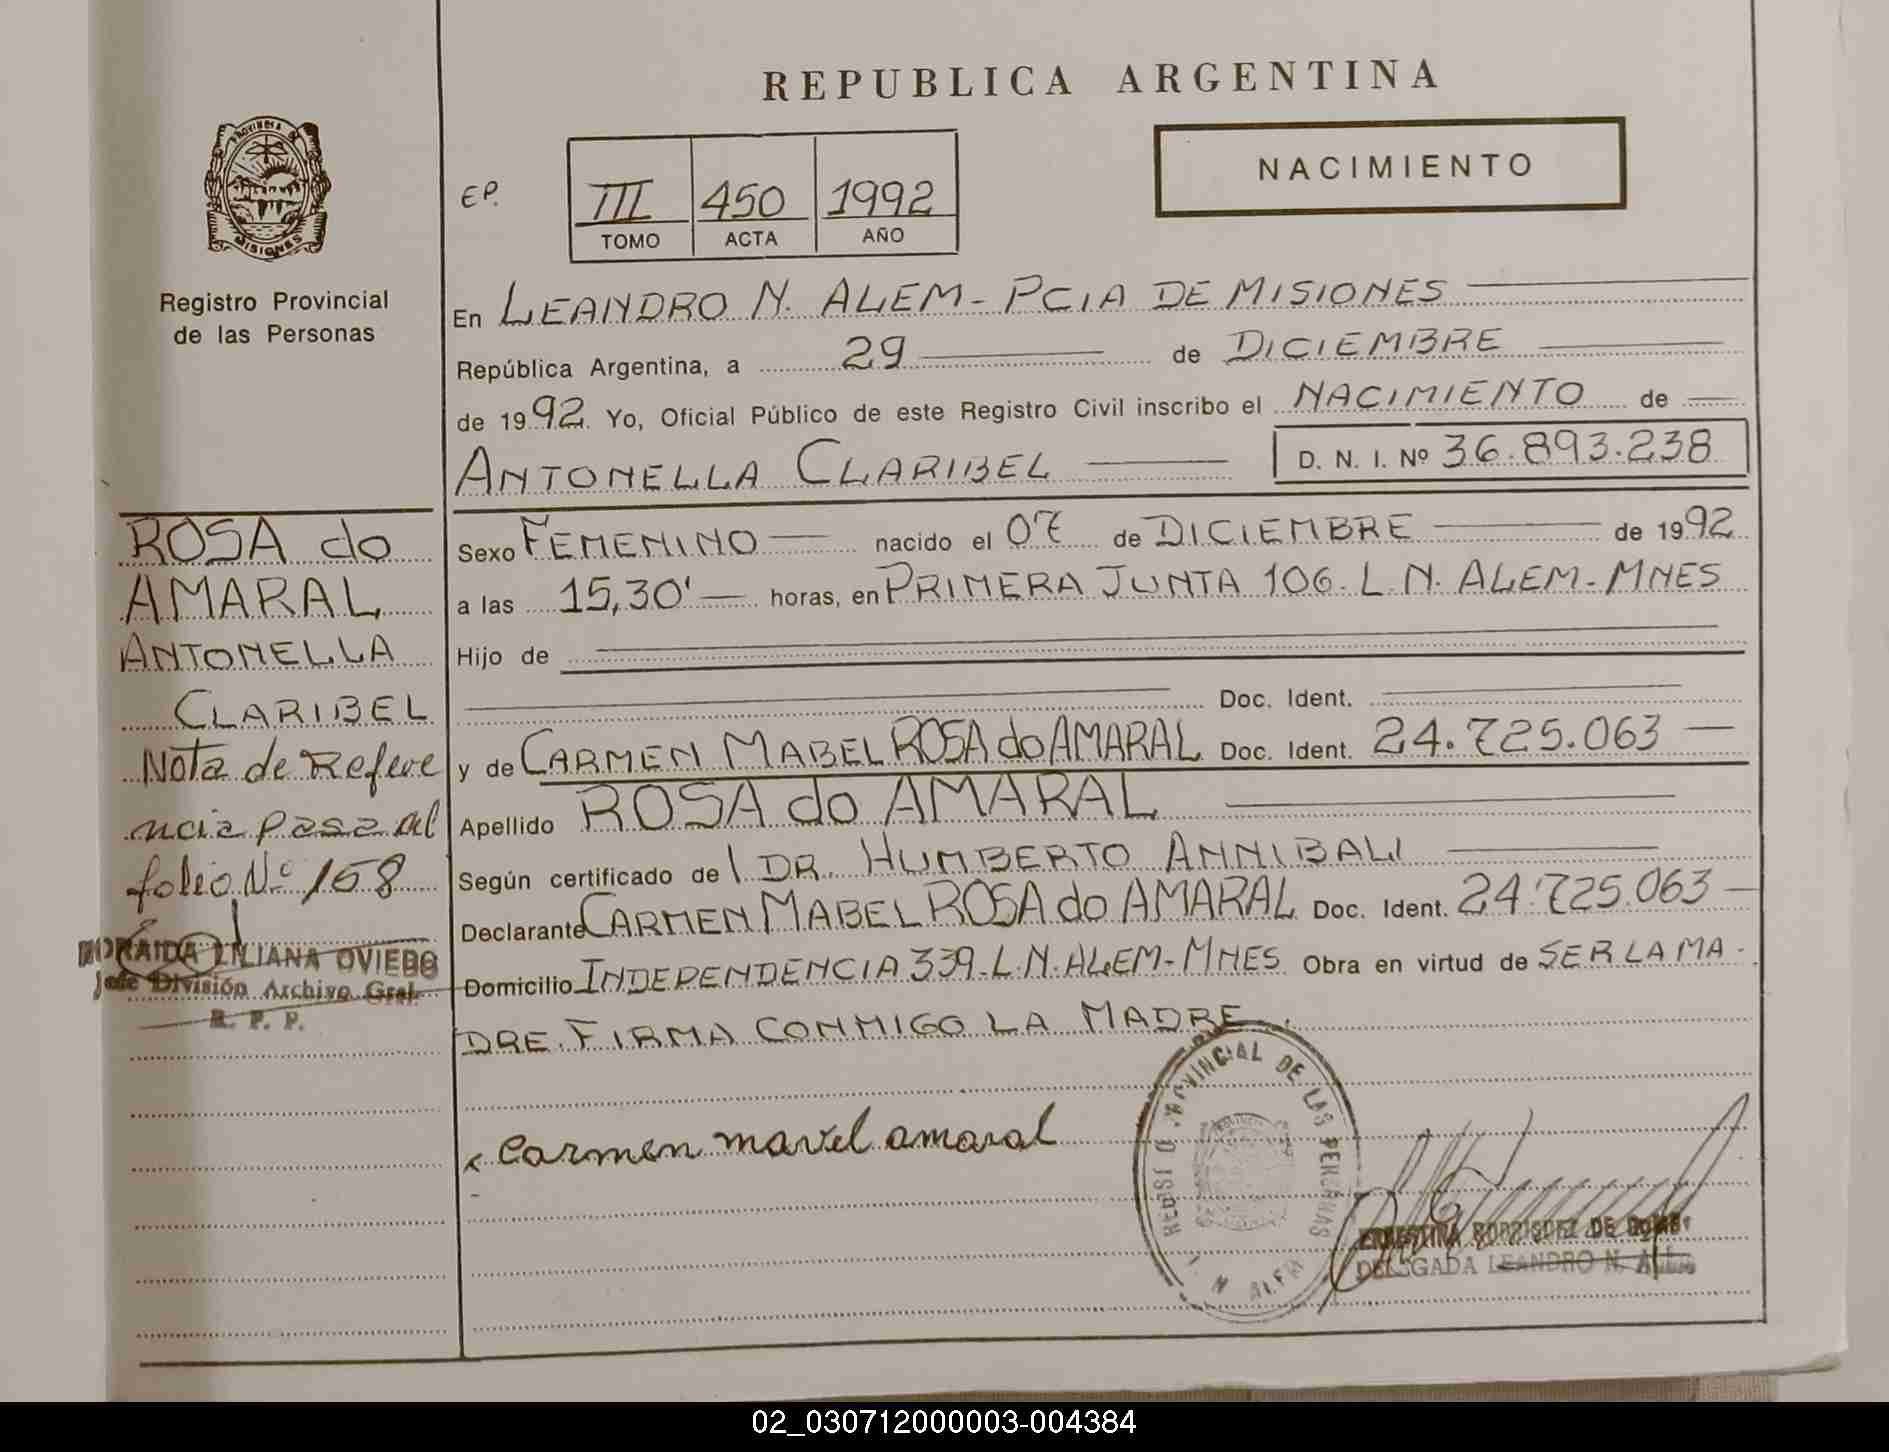 REPUBLICA ARGENTINA
PROVINCIA DE
MISIONES
Registro Provincial
de las Personas
EP.
III 450 1992
TOMO ACTA AÑO
NACIMIENTO
En LEANDRO N. ALEM - PCIA DE MISIONES
República Argentina, a 29 de DICIEMBRE
de 1992. Yo, Oficial Público de este Registro Civil inscribo el NACIMIENTO de
ANTONELLA CLARIBEL D. N. I. Nº 36.893.238
ROSA do
AMARAL
ANTONELLA
CLARIBEL
Nota de Refere
ncia pasa al
folio Nº 158
ZORAIDA LILIANA OVIEDO
Jefe División Archivo Gral.
R. P. P.
Sexo FEMENINO nacido el 07 de DICIEMBRE de 1992
a las 15,30' horas, en PRIMERA JUNTA 106. L. N. ALEM - MNES
Hijo de
Doc. Ident.
y de CARMEN MABEL ROSA do AMARAL Doc. Ident. 24.725.063
Apellido ROSA do AMARAL
Según certificado de l DR. HUMBERTO ANNIBALI
Declarante CARMEN MABEL ROSA do AMARAL Doc. Ident. 24.725.063
Domicilio INDEPENDENCIA 339. L. N. ALEM - MNES Obra en virtud de SER LA MA-
DRE. FIRMA CONMIGO LA MADRE.
carmen mavel amaral
REGISTRO PROVINCIAL DE LAS PERSONAS
L. N. ALEM
ERNESTINA RODRIGUEZ DE
DELEGADA LEANDRO N. ALEM
02_030712000003-004384